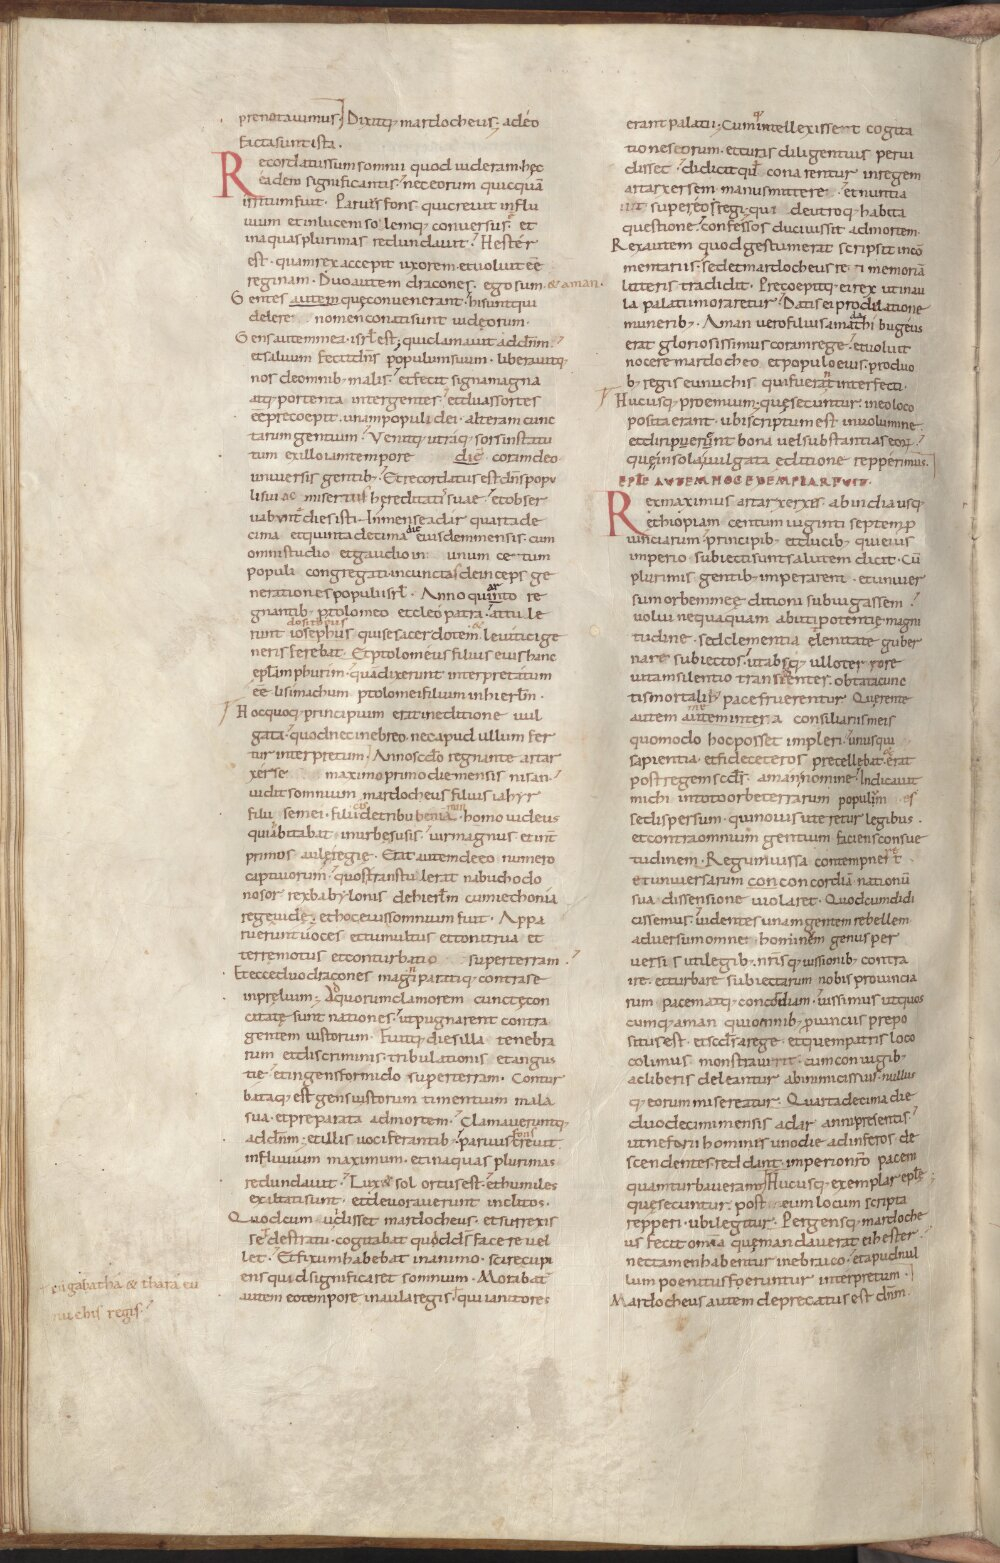 prenotauimus; Dixitq; mardocheus; adeo
facta sunt ista.
Recordatus sum somnii quod uideram. hęc
eadem significantis; nec eorum quicquā
irritum fuit. Paruus fons. qui creuit in flu
uium et in lucem solemq; conuersus. et
in aquas plurimas redundauit; Hester
est. quam rex accepit uxorem et uoluit eē
reginam. Duo autem dracones. ego sum & aman.
Gentes autem quę conuenerant. hi sunt qui
delere nomen conati sunt iudęorum.
Gens autem mea. isrl est; qui clamauit ad dnm.
et saluum fecit dns populum suum. liberauitq;
nos de omnib; malis. et fecit signa magna
atq; portenta inter gentes; et duas sortes
eē precoepit. unam populi dei. alteram cunc
tarum gentium; Venitq; utraq; sors in statu
tum ex illo iam tempore die coram deo
uniuersis gentib; Et recordatus est dns popu
li sui ac misertus hereditatis suae; et obser
uabunt dies isti. In mense adar quarta de
cima et quinta decima die eiusdem mensis. cum
omni studio et gaudio in unum cetum
populi congregati in cunctas deinceps ge
nerationes populi isrl. Anno quarto re
gnantib; ptolomeo et cleopatra; attule
runt dositheus iosephus qui se sacerdotem & leuitici ge
neris ferebat. Et ptolomeus filius eius hanc
eplam phurim. quā dixerunt interpretatum
eē lisimachum ptolomei filium in hierlm.
Hoc quoq; principium erat in editione uul
gata. quod nec in ebreo. nec apud ullum fer
tur interpretum. Anno scdo regnante artar
xerse maximo primo die mensis nisan.
uidit somnium mardocheus filius iahyr
filii semei. filii cis de tribu beniamin. homo iudeus
qui habitabat in urbe susis; uir magnus et int
primos aulę regię. Erat autem de eo numero
captiuorum; quos transtulerat nabuchodo
nosor rex babylonis de hierlm cum iechonia
rege iudę; et hoc eius somnium fuit. Appa
ruerunt uoces et tumultus et tonitrua et
terremotus et conturbatio super terram.
Et ecce duo dracones magni paratiq; contra se
in prelium; Ad quorum clamorem cunctę con
citatę sunt nationes. ut pugnarent contra
gentem iustorum. Fuitq; dies illa tenebra
rum et discriminis. tribulationis et angus
tię. et ingens formido super terram. Contur
bataq; est gens iustorum timentium mala
sua. et preparata ad mortem; Clamaueruntq;
ad dnm; et illis uociferantib; paruus fons creuit
in fluuium maximum. et in aquas plurimas
redundauit. Lux & sol ortus est. et humiles
exaltati sunt. et deuorauerunt inclitos.
Quod cum uidisset mardocheus. et surrexis
set de stratu. cogitabat quid ds facere uel
let. Et fixum habebat in animo. scire cupi
ens quid significaret somnium. Morabat
autem eo tempore in aula regis. qui ianitores
cū gabatha & thara eu
nuchis regis;
erant palatii; Cumq; intellexissent cogita
tiones eorum. et curis diligentius perui
disset; didicit qd conarentur in regem
artarxersem manus mittere. et nuntia
uit super eos regi. qui de utroq; habita
questione; confessos duci iussit ad mortem.
Rex autem quod gestum erat scripsit in com
mentariis; sed et mardocheus rei memoriā
litteris tradidit. Precoepitq; ei rex ut in au
la palatii moraretur; Datis ei pro dilatione
munerib; Aman uero filius amadathi bugeus
erat gloriosissimus coram rege; et uoluit
nocere mardocheo et populo eius. pro duo
b; regis eunuchis qui fuerant interfecti.
Hucusq; proemium; quę secuntur. in eo loco
posita erant. ubi scriptum est in uolumine.
et diripuerunt bona uel substantias eorū;
quę in sola uulgata editione repperimus.
EPLE AUTEM HOC EXEMPLAR FUIT.
Rex maximus artarxerxes. ab india usq;
ethiopiam centum uiginti septem p
uinciarum principib; et ducib; qui eius
imperio subiecti sunt salutem dicit. Cū
plurimis gentib; imperarem. et uniuer
sum orbem meę ditioni subiugassem;
uolui nequaquam abuti potentię magni
tudine. sed clementia & lenitate guber
nare subiectos. ut absq; ullo terrore
uitam silentio transigentes. obtata cunc
tis mortalib; pace fruerentur. Querente
autem me autem inter a consiliariis meis
quomodo hoc posset impleri. unus qui
sapientia et fide ceteros precellebat. & erat
post regem scds. aman nomine; Indicauit
michi in toto orbe terrarum populum es
se dispersum. qui nouis uteretur legibus.
et contra omnium gentium faciens consue
tudinem. Regum iussa contempneret
et uniuersarum con concordiā nationū
sua dissensione uiolaret. Quod cum didi
cissemus. uidentes unam gentem rebellem
aduersum omne hominem genus per
uersis uti legib; nrisq; iussionib; contra
ire. et turbare subiectarum nobis prouincia
rum pacem atq; concordiam. iussimus ut quos
cumq; aman qui omnib; puinciis prepo
situs est. et scds a rege. et quem patris loco
colimus monstrauerit. cum coniugib;
ac liberis deleantur ab inimicis suis. nullus
q; eorum misereatur. Quarta decima die
duodecimi mensis adar anni presentis
ut nefarii homines uno die ad inferos de
scendentes. reddant imperio nro pacem
quam turbauerant; Hucusq; exemplar eplę
quę secuntur. post eum locum scripta
repperi. ubi legitur. Pergensq; mardoche
us fecit omnia quę mandauerat ei hester.
nec tamen habentur in ebraico. et apud nul
lum poenitus foeruntur interpretum.
Mardocheus autem deprecatus est dnm.